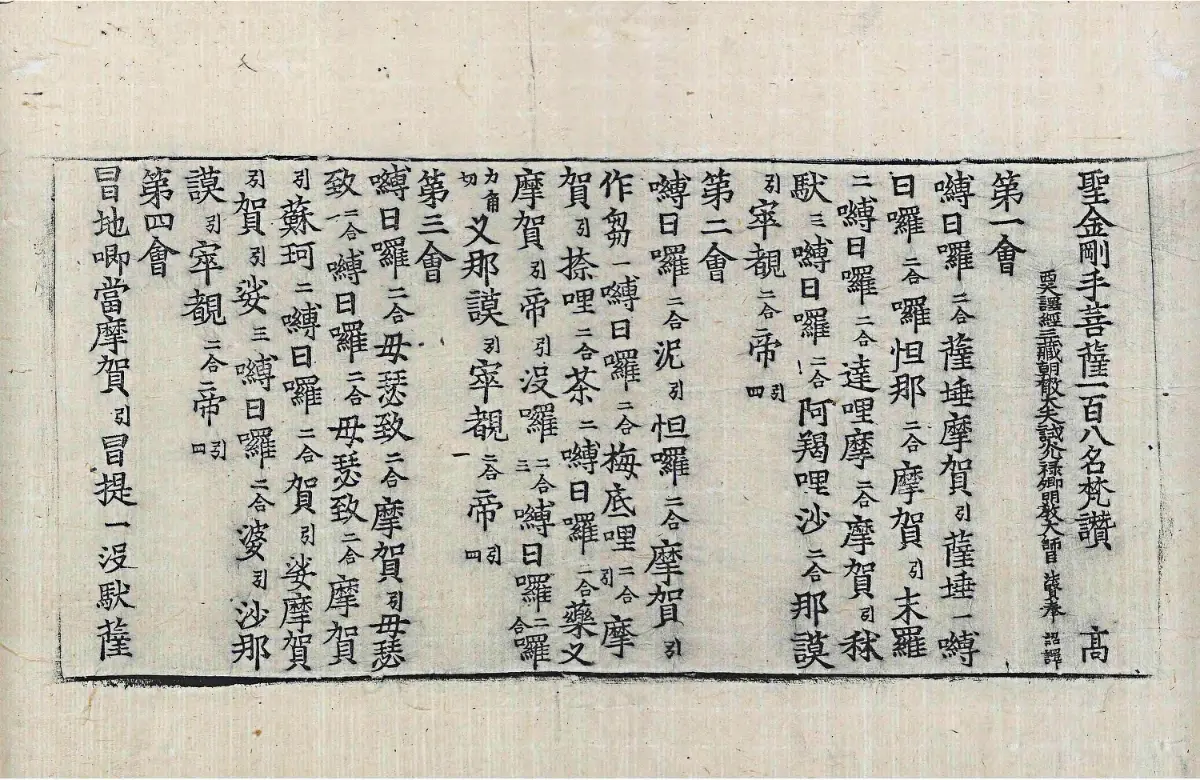 聖金剛手菩薩一百八名梵讚 高
西天譯經三藏朝散大夫試光祿卿明教大師臣法賢奉 詔譯
第一會
嚩日囉二合薩埵摩賀引薩埵一嚩
日囉二合囉怛那二合摩賀引末羅
二嚩日囉二合達哩摩二合摩賀引秫
馱三嚩日囉二合阿羯哩沙二合那謨
引窣覩二合帝引四
第二會
嚩日囉二合泥引怛囉二合摩賀引
作芻一嚩日囉二合梅底哩引二合摩
賀引捺哩二合茶二嚩日囉二合藥乂
摩賀引帝引沒囉二合三嚩日囉二合囉
力角切乂那謨引窣覩二合帝引四
第三會
嚩日囉二合毋瑟致二合摩賀引毋瑟
致二合一嚩日囉二合毋瑟致二合摩賀
引蘇珂二嚩日囉二合賀引娑摩賀
引賀引娑三嚩日囉二合婆引沙那
謨引窣覩二合帝引四
第四會
冒地唧當摩賀引冒提一沒馱薩